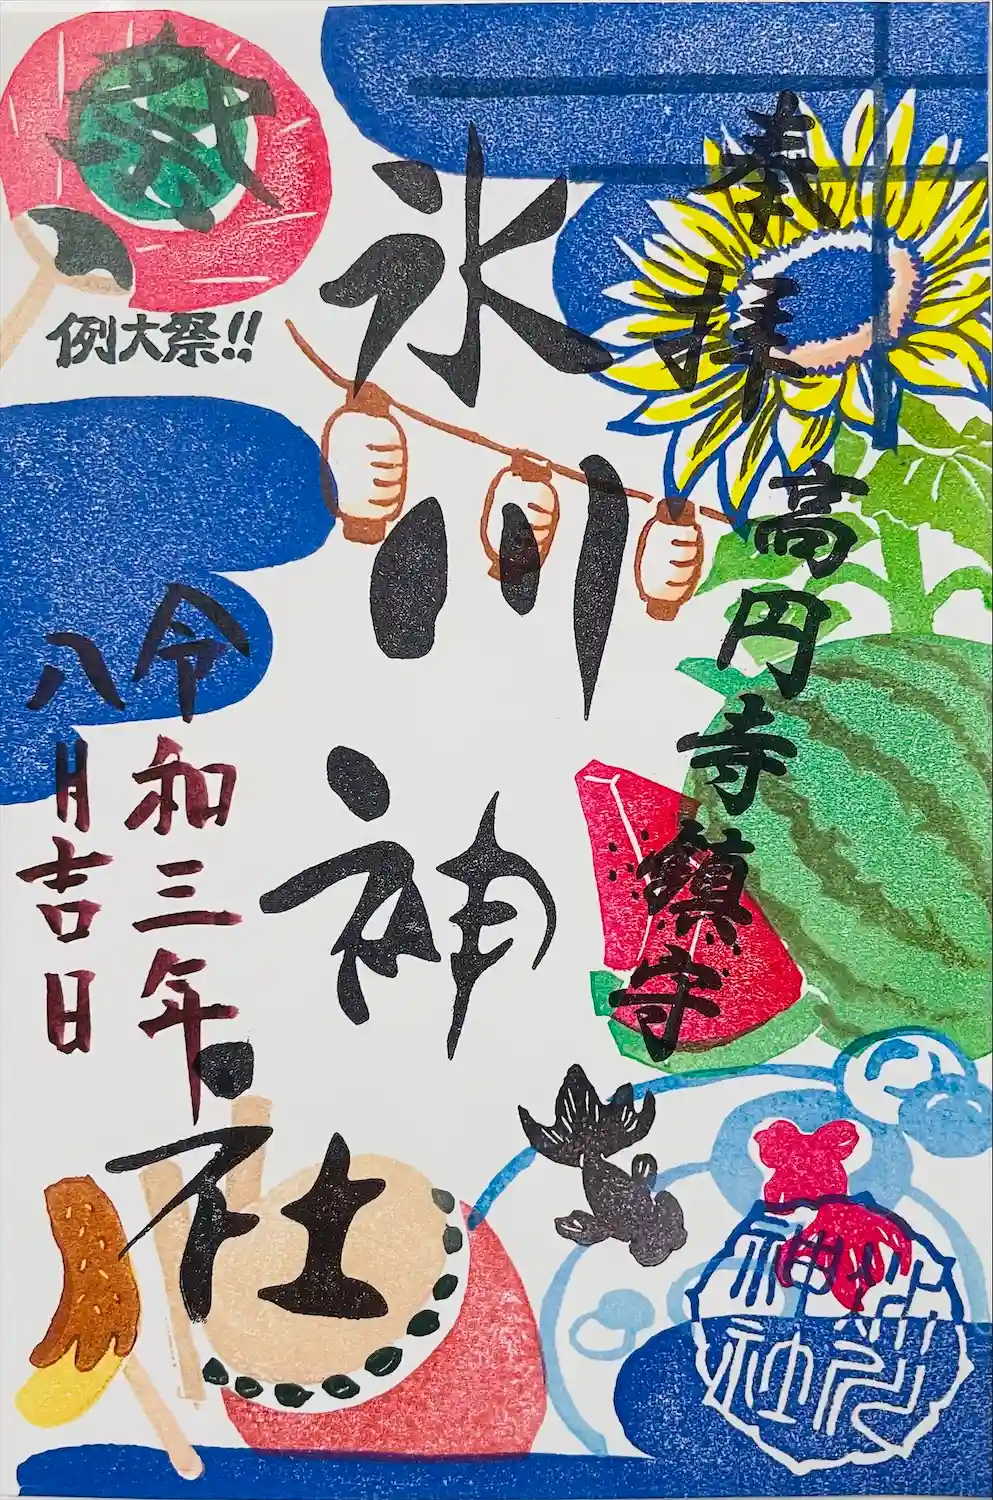 奉拝
高円寺鎮守
氷川神社
令和三年
八月吉日
祭
例大祭!!